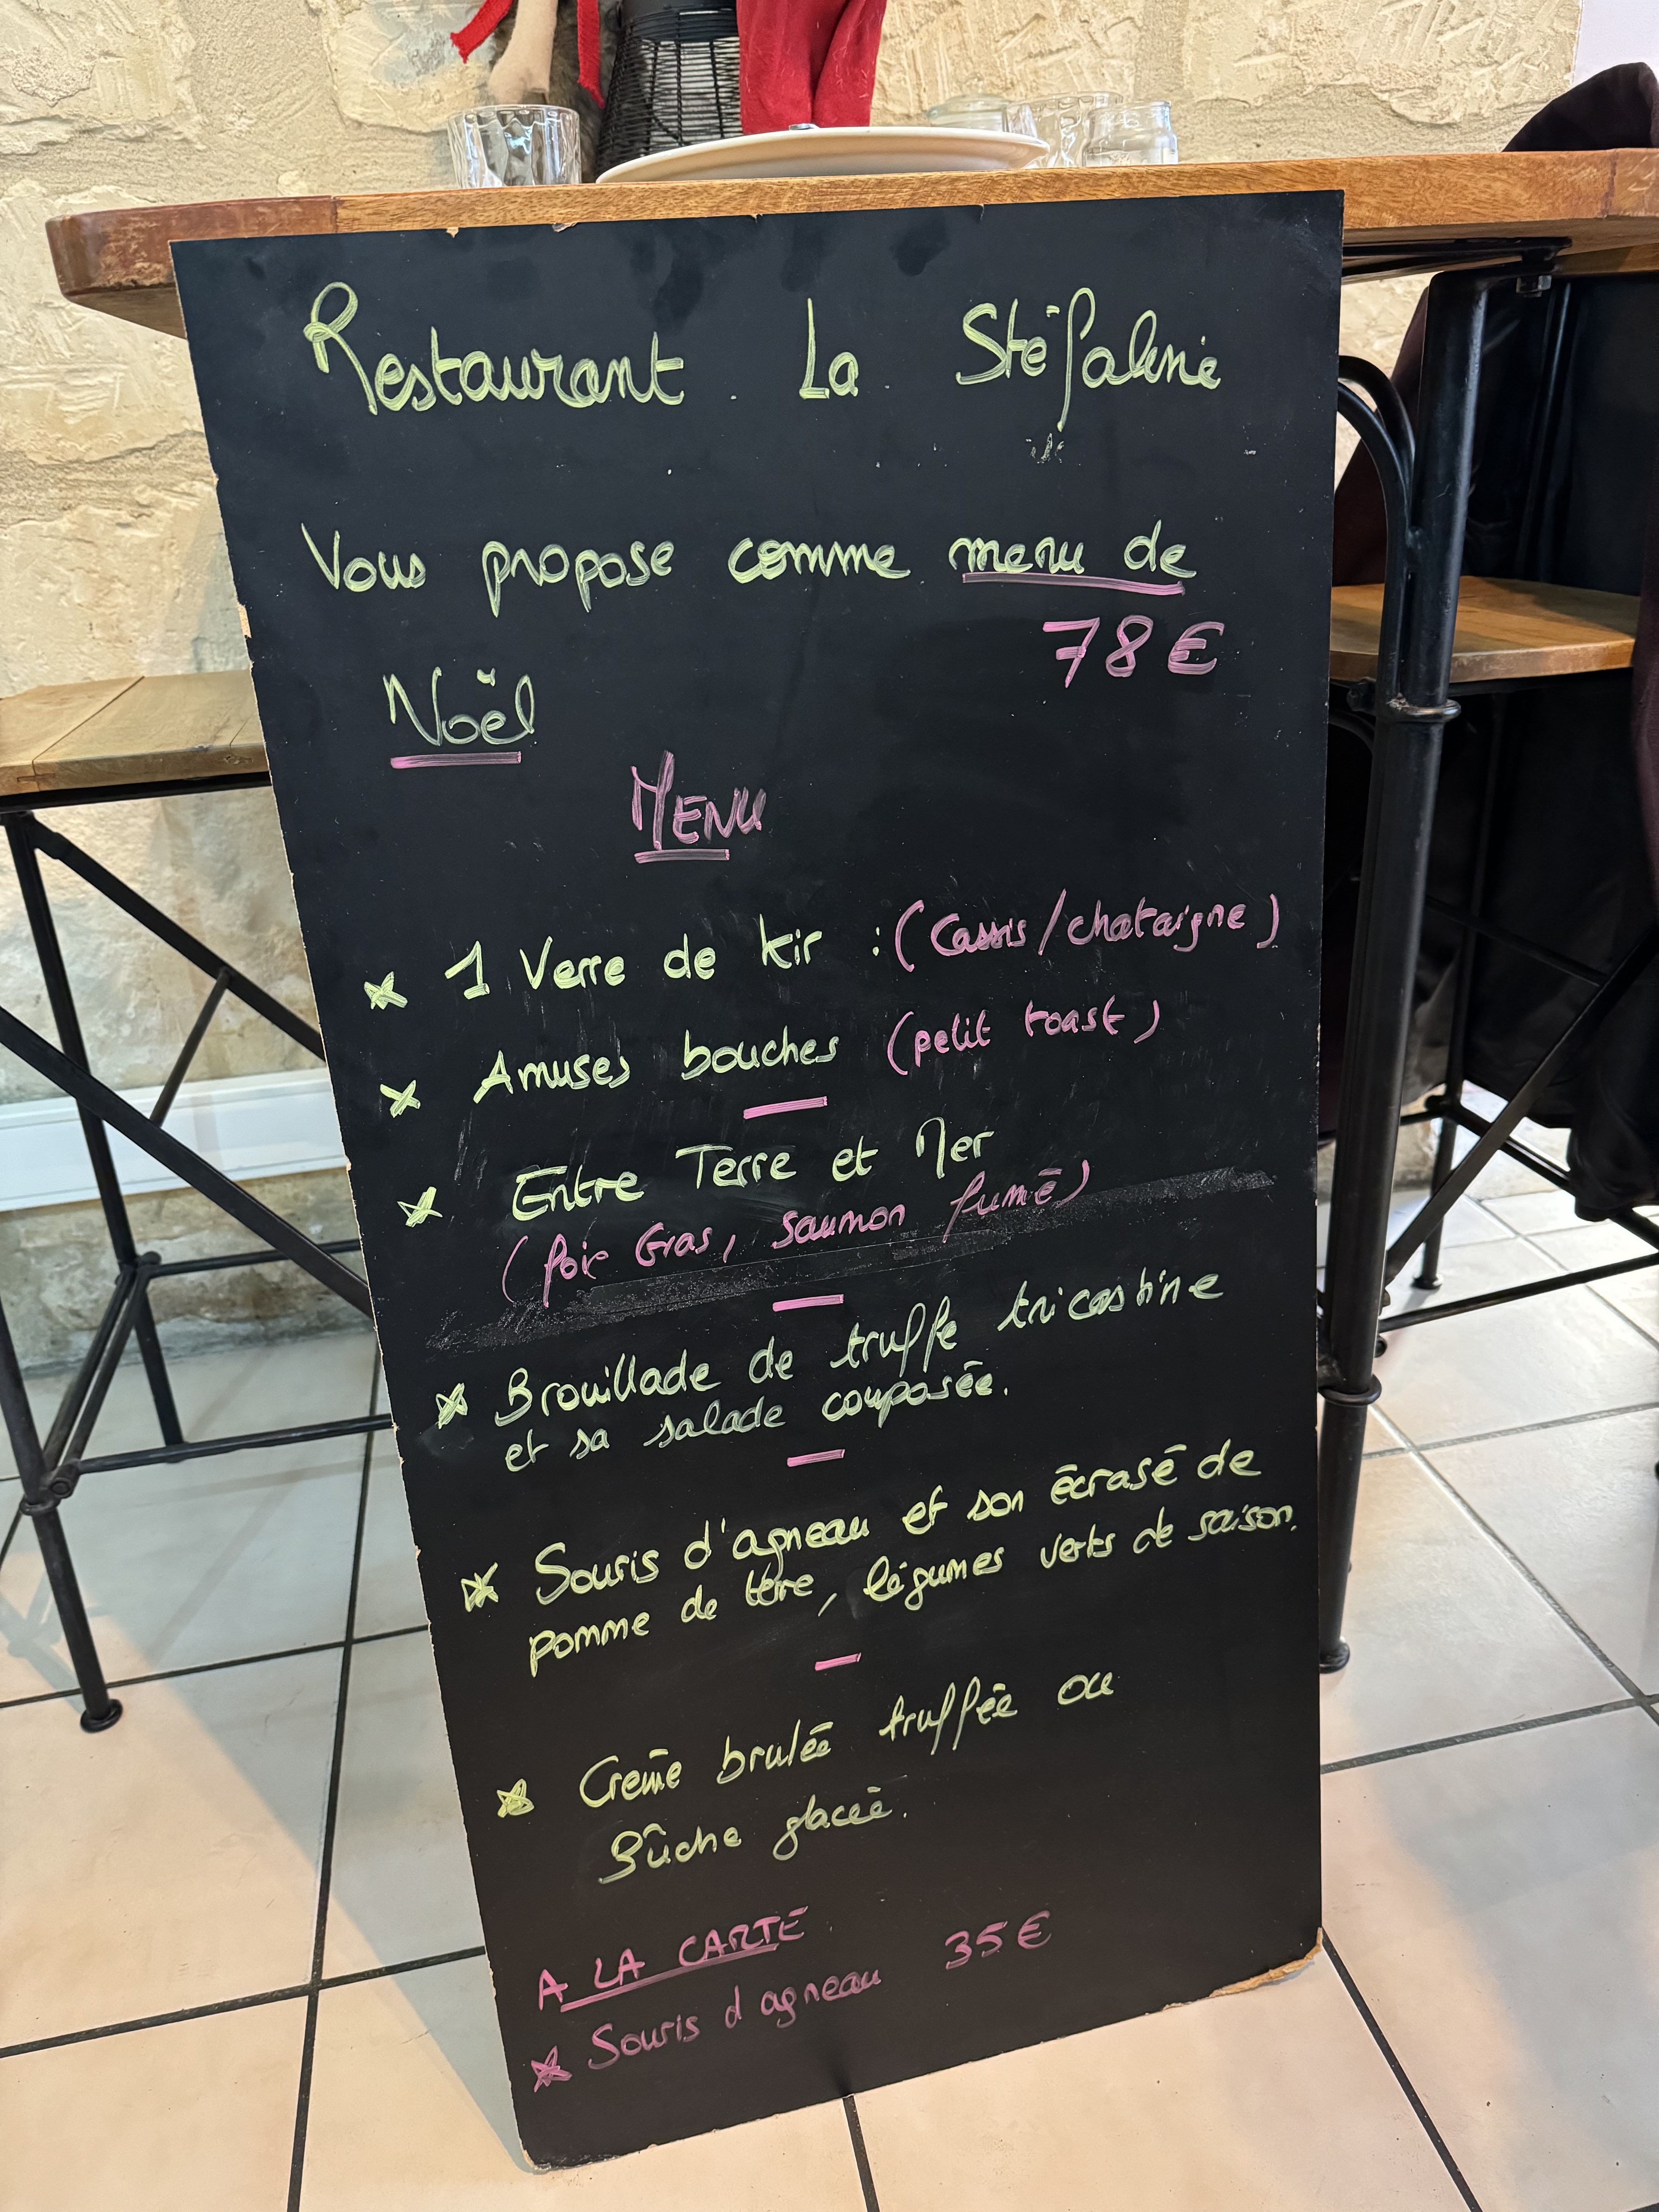 Restaurant La Stéfalnie
Vous propose comme menu de
78€
Noël
MENU
1 Verre de kir : (Cassis/chataigne)
Amuses bouches (petit toast)
Entre Terre et Mer
(foie Gras, saumon fumé)
Brouillade de truffe tricastine
et sa salade composée.
Souris d'agneau et son écrasé de
pomme de terre, légumes verts de saison.
Crème brulée truffée ou
Bûche glacée.
A LA CARTE
Souris d agneau 35€